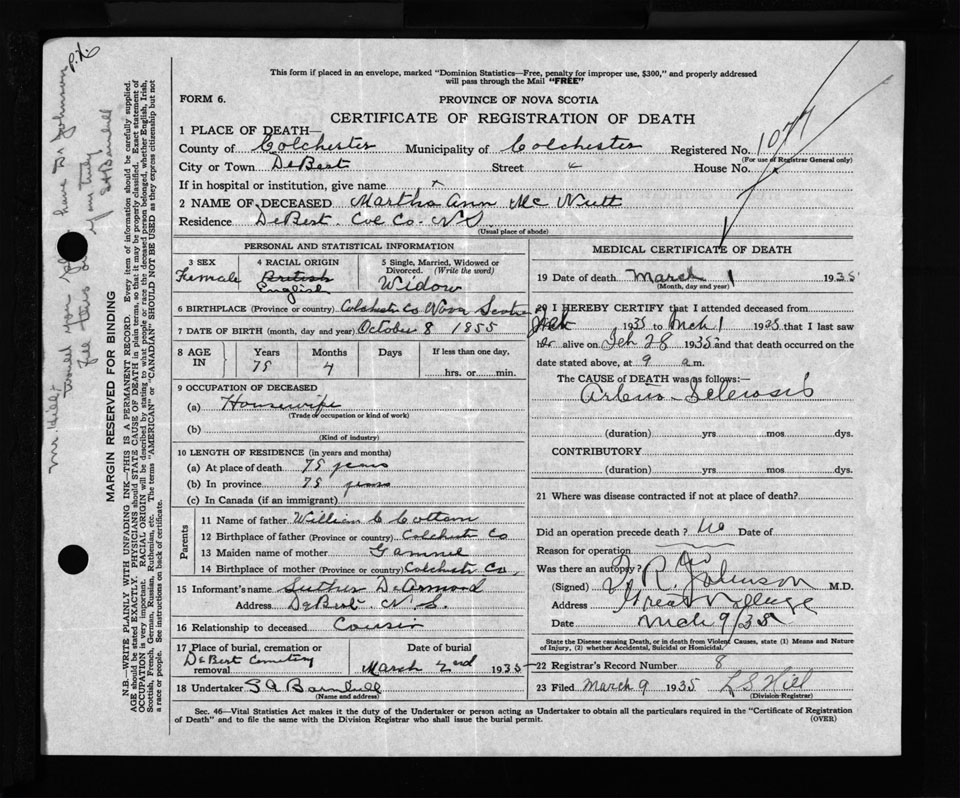 This form if placed in an envelope, marked "Dominion Statistics—Free, penalty for improper use, $300," and properly addressed
will pass through the Mail "FREE"
FORM 6.
PROVINCE OF NOVA SCOTIA
CERTIFICATE OF REGISTRATION OF DEATH
1077
1 PLACE OF DEATH—
County of Colchester Municipality of Colchester Registered No.
(For use of Registrar General only)
City or Town DeBert Street House No.
If in hospital or institution, give name x
2 NAME OF DECEASED Martha Ann Mc Nutt
Residence DeBert Col Co. N.S.
(Usual place of abode)
PERSONAL AND STATISTICAL INFORMATION
3 SEX 4 RACIAL ORIGIN 5 Single, Married, Widowed or Divorced. (Write the word)
Female British English Widow
6 BIRTHPLACE (Province or country) Colchester Co Nova Scotia
7 DATE OF BIRTH (month, day and year) October 8 1855
8 AGE IN Years Months Days If less than one day,
75 4 hrs. or min.
9 OCCUPATION OF DECEASED
(a) Housewife
(Trade or occupation or kind of work)
(b)
(Kind of industry)
10 LENGTH OF RESIDENCE (in years and months)
(a) At place of death 75 years
(b) In province 75 years
(c) In Canada (if an immigrant)
Parents
11 Name of father William C Cottam
12 Birthplace of father (Province or country) Colchester Co
13 Maiden name of mother Gammel
14 Birthplace of mother (Province or country) Colchester Co,
15 Informant's name Luther DeArmond
Address DeBert N.S.
16 Relationship to deceased Cousin
17 Place of burial, cremation or removal Date of burial
DeBert Cemetery March 2nd 1935
18 Undertaker S A Barnhill
(Name and address)
MEDICAL CERTIFICATE OF DEATH
19 Date of death March 1 1935
(Month, day and year)
20 I HEREBY CERTIFY that I attended deceased from
1935 to Mch 1 1935 that I last saw
her alive on Feb 28 1935 and that death occurred on the
date stated above, at 9 a.m.
The CAUSE of DEATH was as follows:—
Arterio-Sclerosis
(duration) yrs mos dys.
CONTRIBUTORY
(duration) yrs mos dys.
21 Where was disease contracted if not at place of death?
Did an operation precede death? No Date of
Reason for operation
Was there an autopsy? No
(Signed) R. Johnson M.D.
Address Great Village
Date Mch 9/35
State the Disease causing Death, or in death from Violent Causes, state (1) Means and Nature
of Injury, (2) whether Accidental, Suicidal or Homicidal.
22 Registrar's Record Number 8
23 Filed March 9 1935 L S Hill
(Division Registrar)
Sec. 46—Vital Statistics Act makes it the duty of the Undertaker or person acting as Undertaker to obtain all the particulars required in the "Certificate of Registration
of Death" and to file the same with the Division Registrar who shall issue the burial permit.
(OVER)
MARGIN RESERVED FOR BINDING
N.B.—WRITE PLAINLY WITH UNFADING INK—THIS IS A PERMANENT RECORD. Every item of information should be carefully supplied.
AGE should be stated EXACTLY. PHYSICIANS should STATE CAUSE OF DEATH in plain terms, so that it may be properly classified. Exact statement of
OCCUPATION is very important. RACIAL ORIGIN will be described by stating to what people or race the deceased person belonged, whether English, Irish,
Scottish, French, German, Russian, Ruthenian, etc. The terms "AMERICAN" or "CANADIAN" SHOULD NOT BE USED as they express citizenship but not
a race or people. See instructions on back of certificate.
Mr Hill
would you have Dr Johnson
fill this
yours truly
S A Barnhill